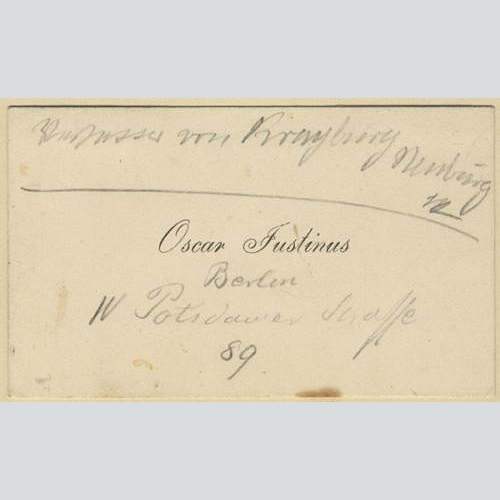 Verfasser von Krayburg
Neuburg
Oscar Justinus
Berlin
W Potsdamer Strasse
89